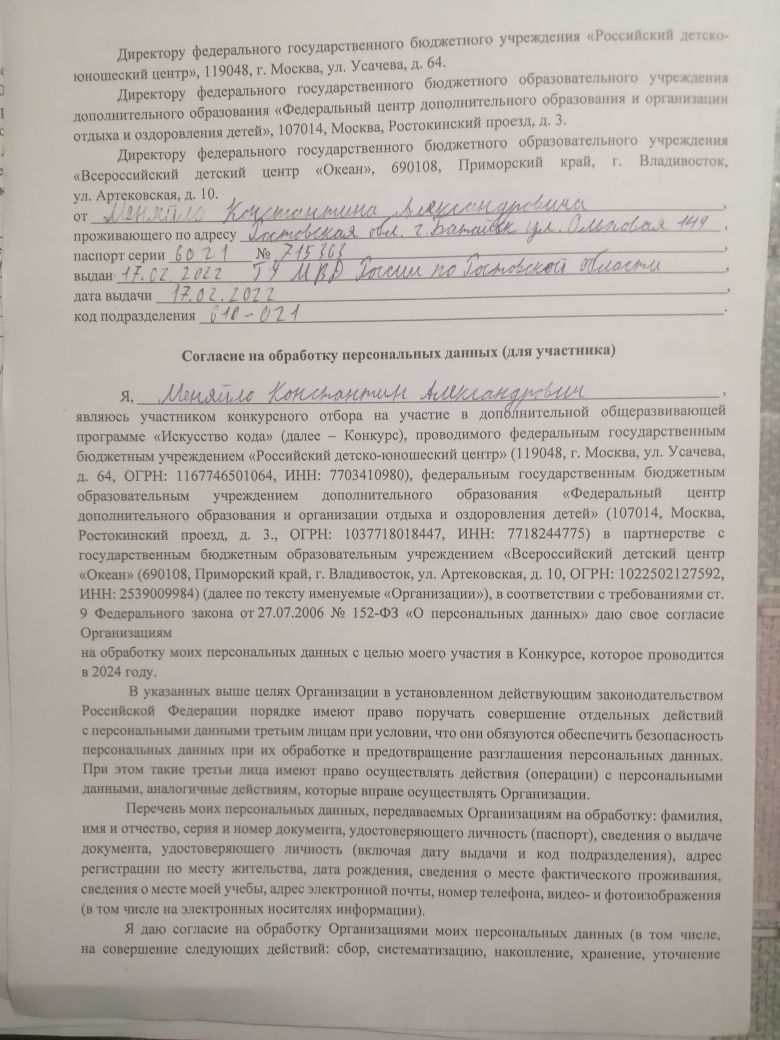 Директору федерального государственного бюджетного учреждения «Российский детско-
юношеский центр», 119048, г. Москва, ул. Усачева, д. 64.
Директору федерального государственного бюджетного образовательного учреждения
дополнительного образования «Федеральный центр дополнительного образования и организации
отдыха и оздоровления детей», 107014, Москва, Ростокинский проезд, д. 3.
Директору федерального государственного бюджетного образовательного учреждения
«Всероссийский детский центр «Океан», 690108, Приморский край, г. Владивосток,
ул. Артековская, д. 10.
от Меняйло Константина Александровича,
проживающего по адресу Ростовская обл. г. Батайск ул. Ольховая 149,
паспорт серии 6021 № 715363
выдан 17.02.2022 ГУ МВД России по Ростовской области,
дата выдачи 17.02.2022,
код подразделения 610-021.
Согласие на обработку персональных данных (для участника)
Я, Меняйло Константин Александрович,
являюсь участником конкурсного отбора на участие в дополнительной общеразвивающей
программе «Искусство кода» (далее – Конкурс), проводимого федеральным государственным
бюджетным учреждением «Российский детско-юношеский центр» (119048, г. Москва, ул. Усачева,
д. 64, ОГРН: 1167746501064, ИНН: 7703410980), федеральным государственным бюджетным
образовательным учреждением дополнительного образования «Федеральный центр
дополнительного образования и организации отдыха и оздоровления детей» (107014, Москва,
Ростокинский проезд, д. 3., ОГРН: 1037718018447, ИНН: 7718244775) в партнерстве с
государственным бюджетным образовательным учреждением «Всероссийский детский центр
«Океан» (690108, Приморский край, г. Владивосток, ул. Артековская, д. 10, ОГРН: 1022502127592,
ИНН: 2539009984) (далее по тексту именуемые «Организации»), в соответствии с требованиями ст.
9 Федерального закона от 27.07.2006 № 152-ФЗ «О персональных данных» даю свое согласие
Организациям
на обработку моих персональных данных с целью моего участия в Конкурсе, которое проводится
в 2024 году.
В указанных выше целях Организации в установленном действующим законодательством
Российской Федерации порядке имеют право поручать совершение отдельных действий
с персональными данными третьим лицам при условии, что они обязуются обеспечить безопасность
персональных данных при их обработке и предотвращение разглашения персональных данных.
При этом такие третьи лица имеют право осуществлять действия (операции) с персональными
данными, аналогичные действиям, которые вправе осуществлять Организации.
Перечень моих персональных данных, передаваемых Организациям на обработку: фамилия,
имя и отчество, серия и номер документа, удостоверяющего личность (паспорт), сведения о выдаче
документа, удостоверяющего личность (включая дату выдачи и код подразделения), адрес
регистрации по месту жительства, дата рождения, сведения о месте фактического проживания,
сведения о месте моей учебы, адрес электронной почты, номер телефона, видео- и фотоизображения
(в том числе на электронных носителях информации).
Я даю согласие на обработку Организациями моих персональных данных (в том числе,
на совершение следующих действий: сбор, систематизацию, накопление, хранение, уточнение